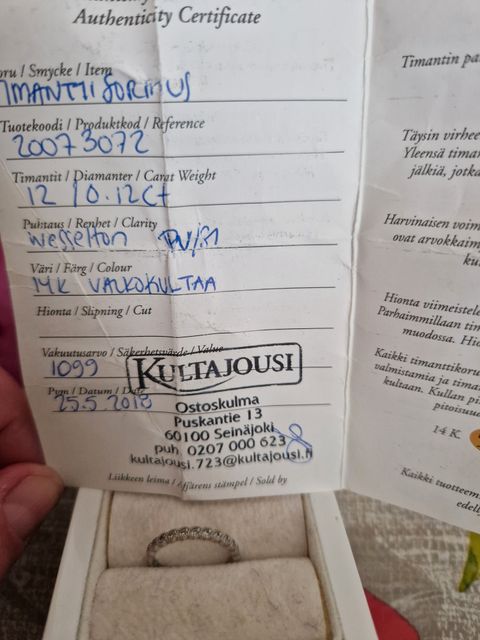 Authenticity Certificate
oru / Smycke / Item
IMANTTISORMUS
Tuotekoodi / Produktkod / Reference
20073072
Timantit / Diamanter / Carat Weight
12 / 0.12ct
Puhtaus / Renhet / Clarity
Wesselton
Väri / Färg / Colour
14K VALKOKULTAA
Hionta / Slipning / Cut
Vakuutusarvo / Säkerhetsvärde / Value
1099
Pvm / Datum / Date
25.5.2018
KULTAJOUSI
Ostoskulma
Puskantie 13
60100 Seinäjoki
puh 0207 000 623
kultajousi.723@kultajousi.fi
Liikkeen leima / Affärens stämpel / Sold by
Timantin pa
Täysin virhee
Yleensä timan
jälkiä, jotka
Harvinaisen voim
ovat arvokkaim
ku
Hionta viimeistele
Parhaimmillaan tim
muodossa. Hio
Kaikki timanttikoru
valmistamia ja timan
kultaan. Kullan pi
pitoisuu
14 K
Kaikki tuotteem
edell